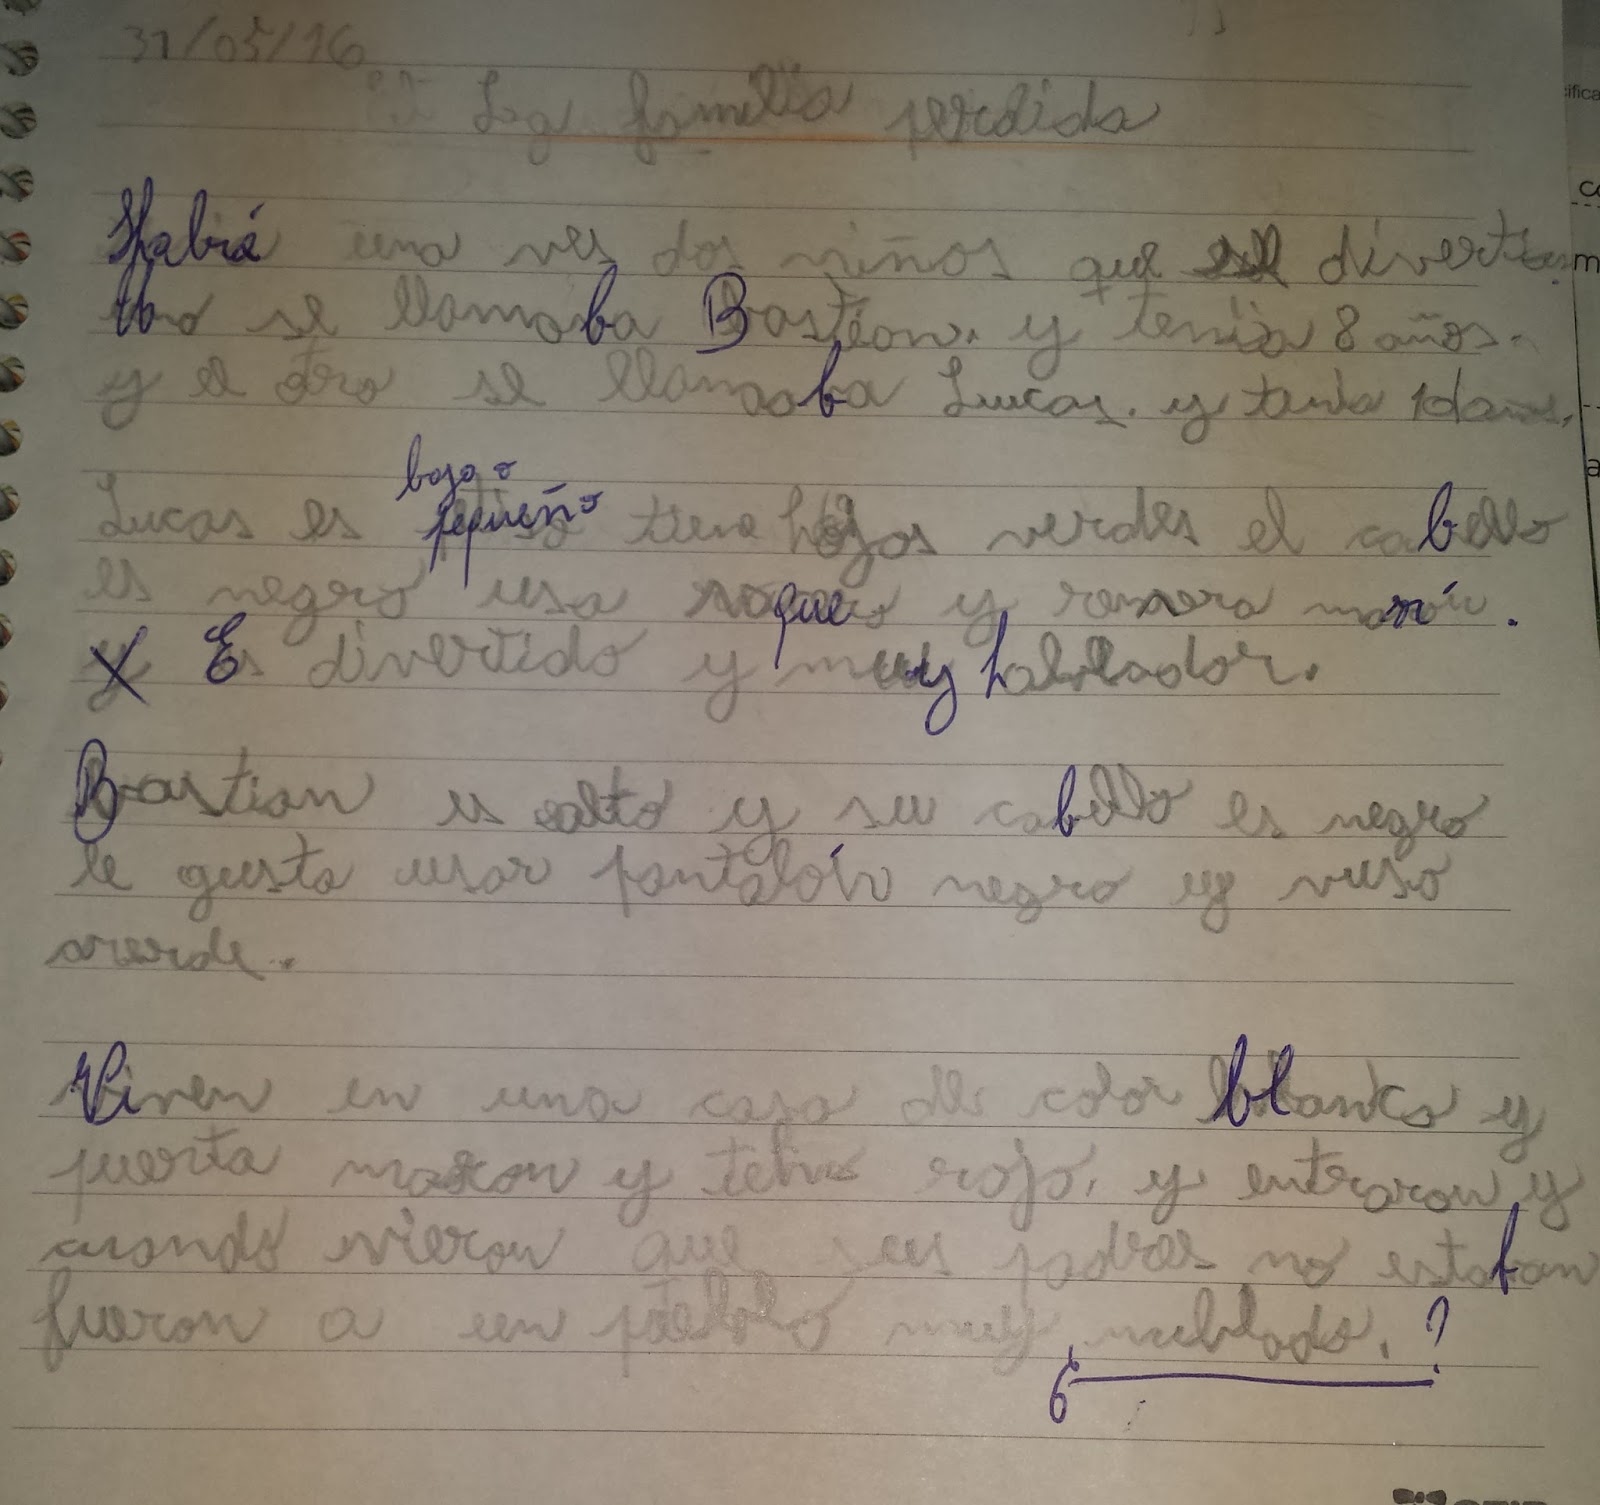 31/05/16
La familia perdida
Habiá una ves dos niños que divertian
Uno se llamaba Bastian. y tenia 8 años.
y el otro se llamaba Lucas. y tenia 10 años.
bajo o
Lucas es pequeño tiene ojos verdes el cabello
es negro usa y remera marrón.
y Es divertido y muy hablador.
Bastian es alto y su cabello es negro
le gusta usar pantalón negro y vuso
verde.
Viven en una casa de color blanco y
puerta maron y rojo. y entraron y
cuando vieron que sus padres no estaban
fueron a un pueblo muy nublado. ?